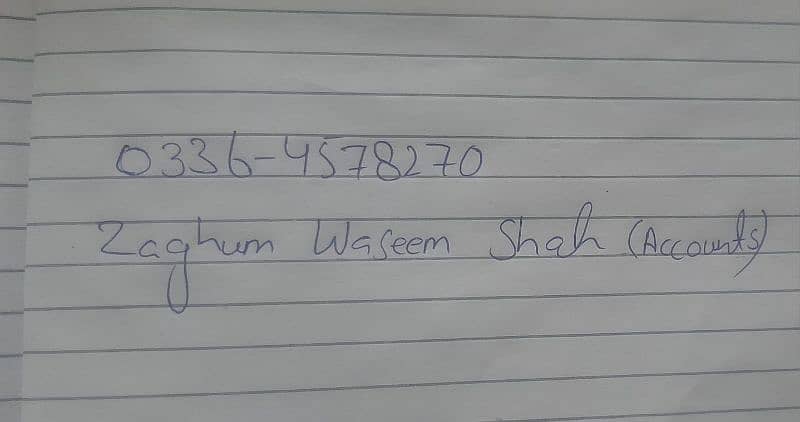 0336-4578270
Zaghum Waseem Shah (Accounts)